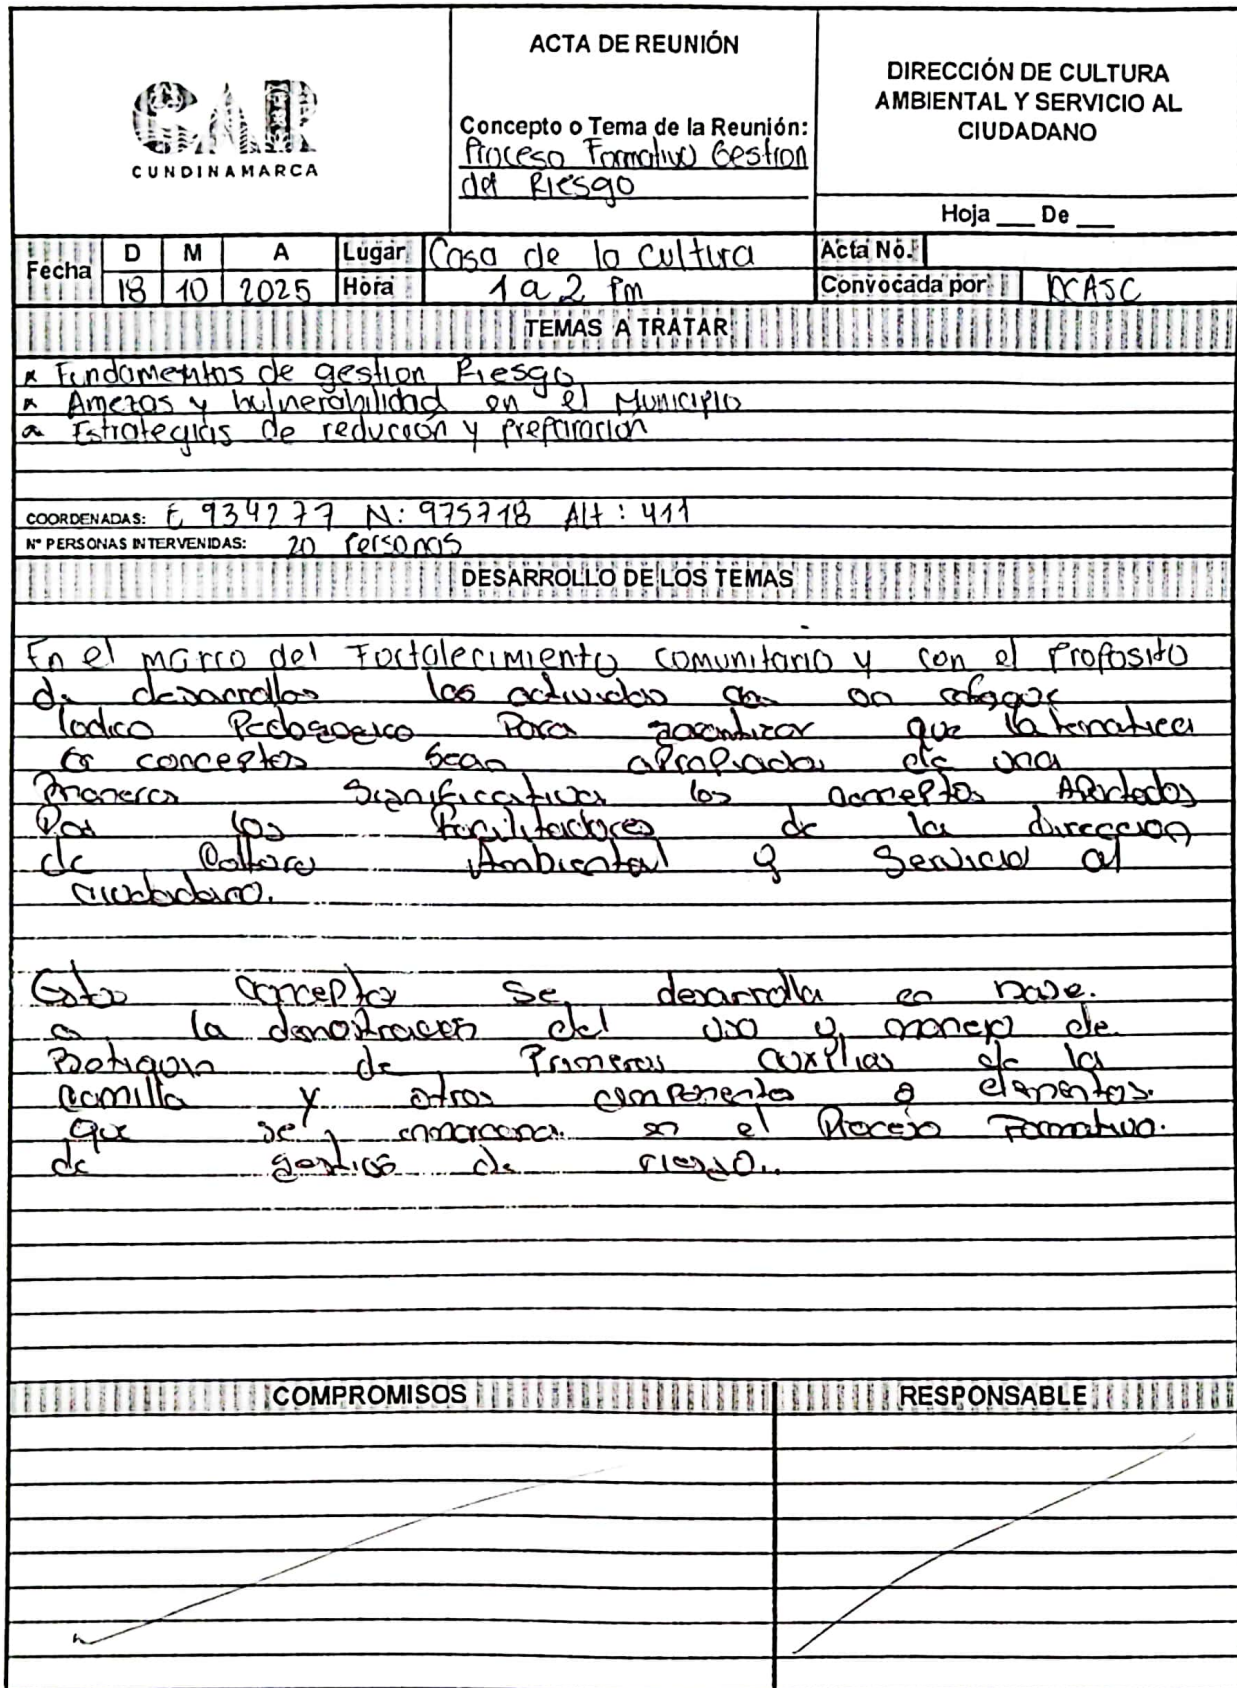 CAR
CUNDINAMARCA
ACTA DE REUNIÓN
Concepto o Tema de la Reunión:
Proceso Formativo Gestion
del Riesgo
DIRECCIÓN DE CULTURA
AMBIENTAL Y SERVICIO AL
CIUDADANO
Hoja ___ De ___
Fecha D M A Lugar Casa de la cultura Acta No.
18 10 2025 Hora 1 a 2 Pm Convocada por DCASC
TEMAS A TRATAR
* Fundamentos de gestion Riesgo
* Amezas y vulnerabilidad en el Municipio
* Estrategias de reducción y preparación
COORDENADAS: E 934277 N: 975718 Alt: 411
N° PERSONAS INTERVENIDAS: 20 Personas
DESARROLLO DE LOS TEMAS
En el marco del Fortalecimiento comunitario y con el Proposito
de desarrollar las con un
lodico Pedagogico Para garantizar que la tematica
conceptos sean de una
manera significativa los conceptos
Por los Facilitadores de la direccion
de Coltura Ambiental y Servicio al
ciudadano.
concepto se desarrolla en base.
a la del uso y manejo de
Botiquin de Primeros auxilios de la
camilla y otros componentes o elementos.
que se en el Proceso Formativo.
de de riesgo.
COMPROMISOS RESPONSABLE